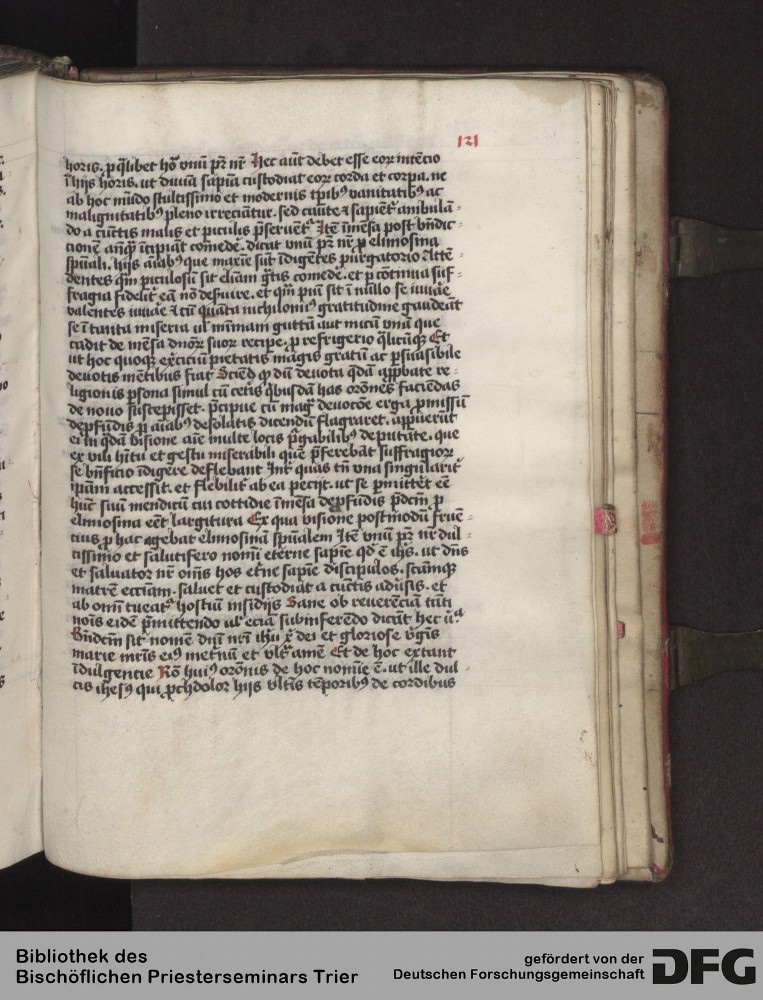 121
horis. p̱ qͥlibet hoͬ vnū pr̄ nr̄ Hec aūt debet esse eoꝝ intēcio
ī hijs horis. ut diuīa sapīa custodiat eoꝝ corda et corpa. ne
ab hoc mūdo stultissimo et modernis tp̄ibꝰ vanitatibꝰ ac
malignitatibꝰ pleno irreciantur. sed caute ⁊ sapient͛ ambulā-
do a cūctis malis et piculis p̄seruent᷑ Itē ī mēsa post bn̄dic-
cionē anqͣ̄ īcipiāt comedē. dicāt vnū pr̄ nr̄ ꝓ elimosina
spūali. hijs aīabꝰ que maxīe sūt īdigētes purgatorio Attē-
dentes qͣ̄m piculosū sit eliāın gͣtis comedē. et p continua suf-
fragia fidelit͛ eā nō deẞuire. et qͣ̄m piū sit ī nullo se iuuāe
valentes iuuāe ⁊ cū quāta nichilominꝰ gratitudine gaudeāt
se ī tanta miseria ul̓ mīmam guttā aut micā vnā que
cadit de mēsa dnōꝝ suoꝝ recipe. ꝓ refrigerio qͣlicūqꝫ Et
ut hoc quoqꝫ ex͛ciciū pietatis magis gratū ac p̱suasibile
deuotis mētibus fiat Sciēdū ꝙ dū deuota qͣdā ap̱pbate re-
ligionis p̱sona simul cū cet͛is qͥbusdā has orōnes faciendas
de nouo suscepisset. p̄cipue cū magͣ deuocōe erga p̱missū
dep̱fūdis ꝓ aīabꝰ desolatis dicendū flagraret. appuerūt
ei in qͣdā visione aīe multe locis p̱gabilibꝰ deputate. que
ex vili hītu et gestu miserabili que p̄ferebāt suffragioꝝ
se bn̄ficio īdigere deflebant Int͛ quas tn̄ vna singularit͛
ipām accessit. et flebilit͛ ab ea pecijt. ut se p̱mittet eē
hūc suū mendicū cui cottidie ī mēsa dep̱fūdis p̄dcm̄ ꝓ
elimosina eēt largitura Ex qua visione postmodū fruē-
cius ꝓ hac agebat elimosinā spūalem Itē vnū pr̄ nr̄ dul-
cissimo et salutifero nomī eterne sapīe qd̄ ē ihs̄. ut dn̄s
et saluator nr̄ om̄s hos et͛ne sapīe discipulos. scāmqꝫ
matrē ecc̄iam. saluet et custodiat a cūctis adūsis. et
ab omī tueat᷑ hostiū insidijs Sane ob reuerēciā tāti
noīs eidē p̱mittendo ul̓ eciā subinferēdo dicāt hec ūͣ.
Bn̄dcm̄ sit nomē dnī nr̄i ihū xͥ dei et gloriose vͥgīs
marie mr̄is eiꝰ in et͛nū et vltͣ amē Et de hoc extant
īdulgencie Rō huiꝰ orōnis de hoc nomīe ē. ut ille dul
cis ihesꝰ qui ꝓchdolor hijs vltīs tēporibꝰ de cordibus
Bibliothek des
Bischöflichen Priesterseminars Trier
gefördert von der
Deutschen Forschungsgemeinschaft
DFG